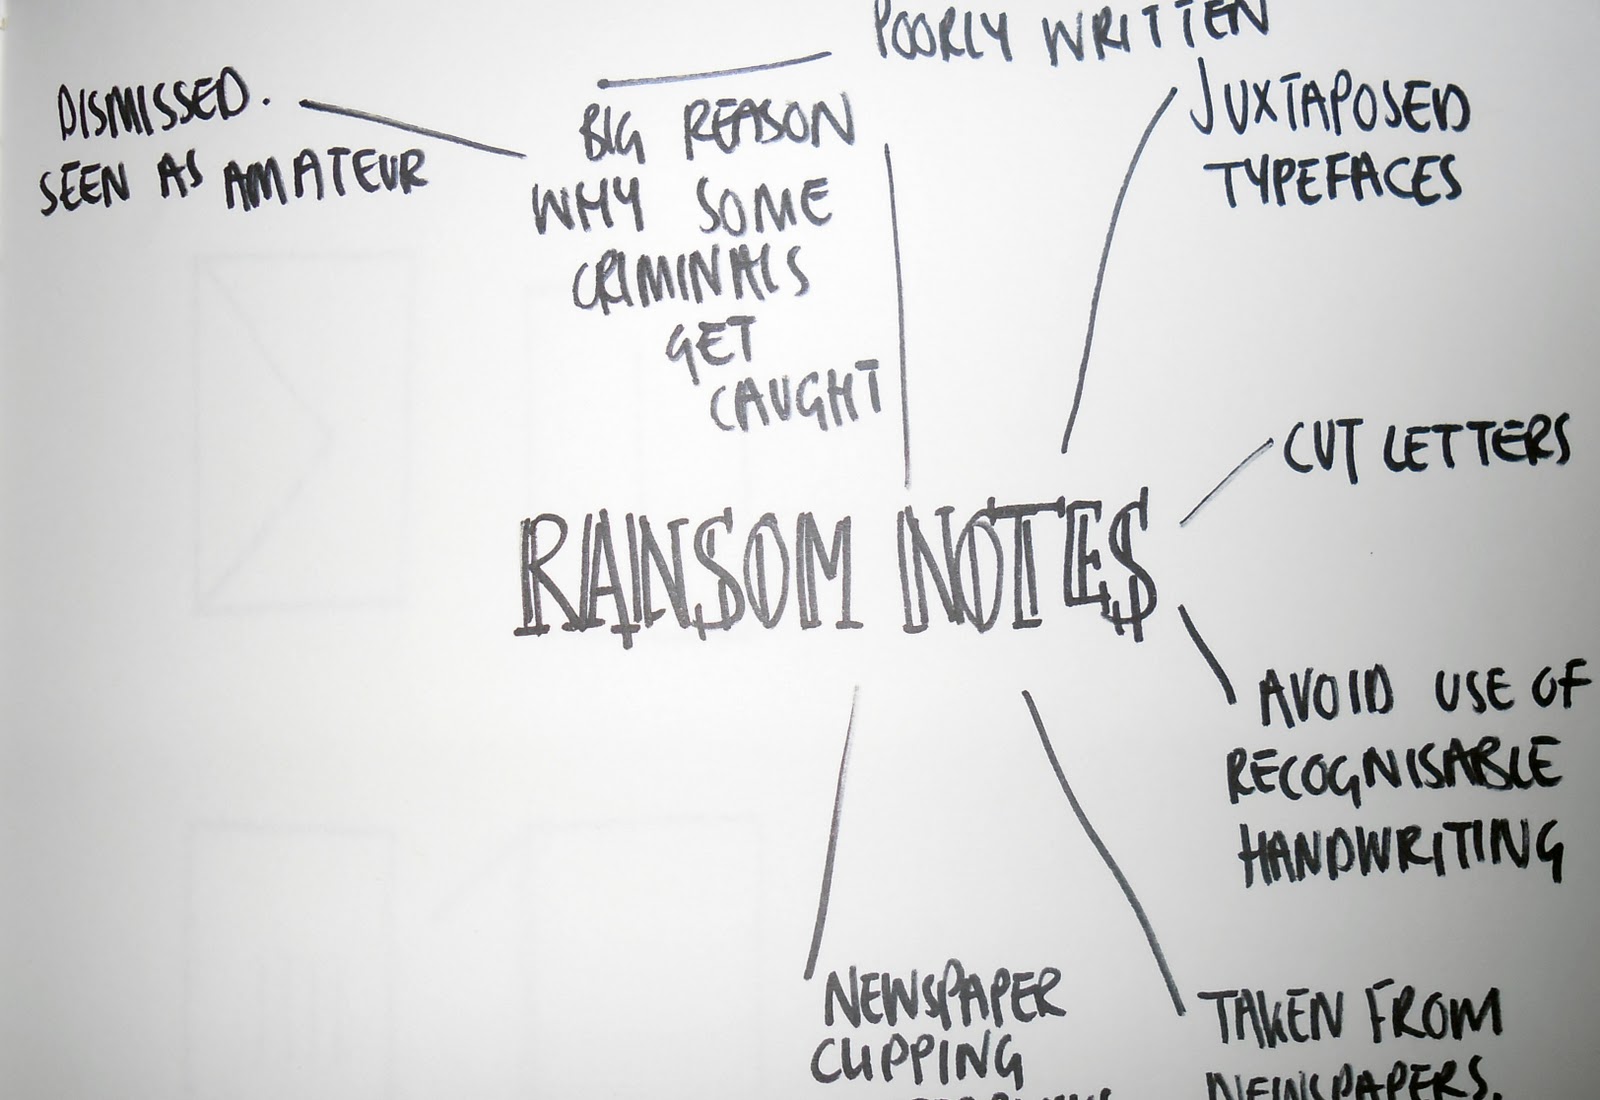 POORLY WRITTEN
DISMISSED.
SEEN AS AMATEUR
BIG REASON
WHY SOME
CRIMINALS
GET
CAUGHT
JUXTAPOSED
TYPEFACES
CUT LETTERS
RANSOM NOTES
AVOID USE OF
RECOGNISABLE
HANDWRITING
NEWSPAPER
CLIPPING
TAKEN FROM
NEWSPAPERS.